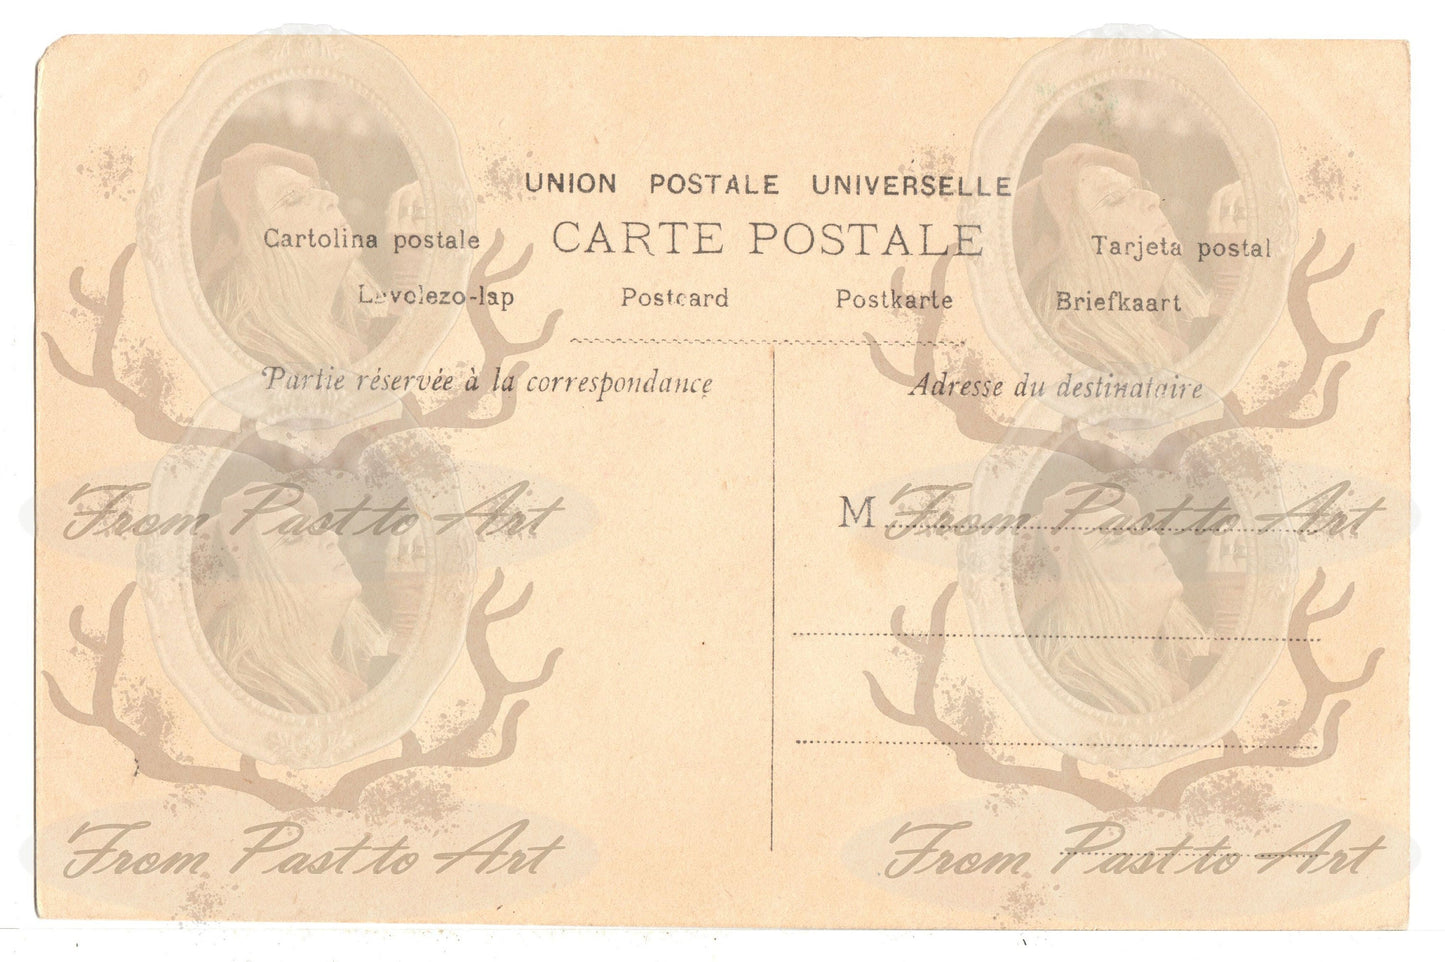 UNION POSTALE UNIVERSELLE
CARTE POSTALE
Cartolina postale Tarjeta postal
Levelezo-lap Postcard Postkarte Briefkaart
Partie réservée à la correspondance Adresse du destinataire
M
From Past to Art From Past to Art
From Past to Art From Past to Art